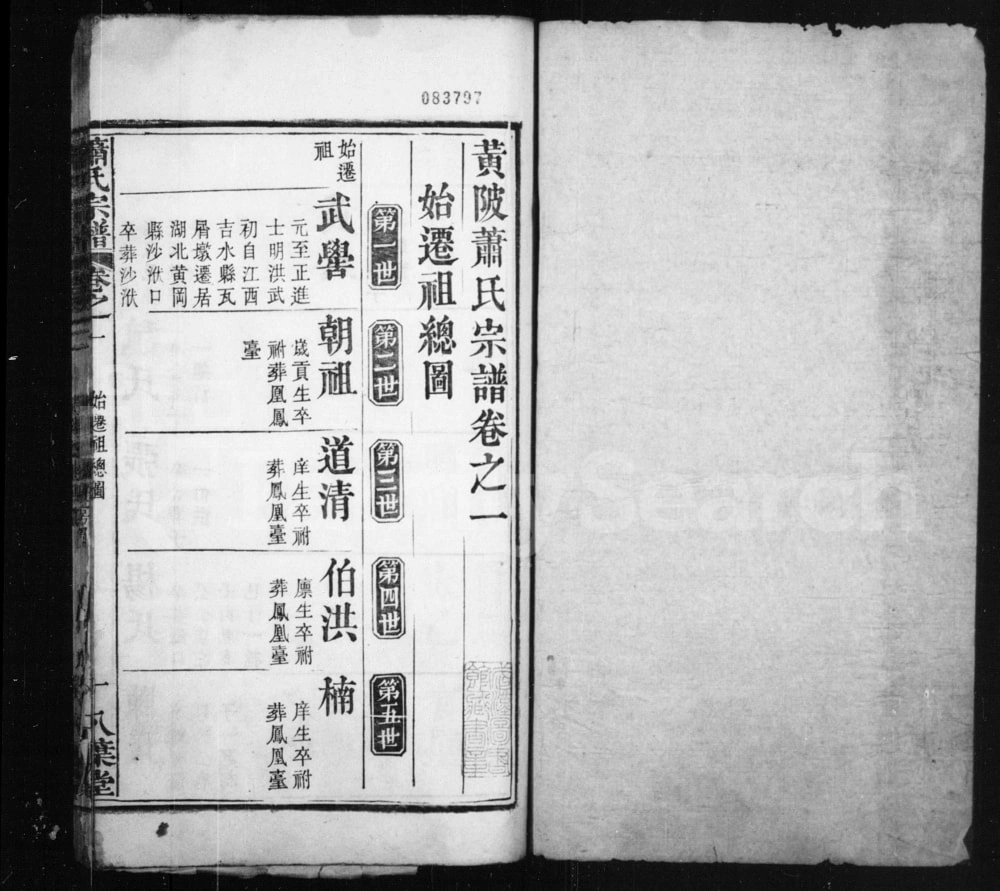 083797
黃陂蕭氏宗譜卷之一
始遷祖總圖
第一世
第二世
第三世
第四世
第五世
始遷
祖
武學
元至正進
士明洪武
初自江西
吉水縣瓦
屑墩遷居
湖北黃岡
縣沙洑口
卒葬沙洑
朝祖
歲貢生卒
祔葬凰鳳
臺
道清
庠生卒祔
葬鳳凰臺
伯洪
廪生卒祔
葬鳳凰臺
楠
庠生卒祔
葬鳳凰臺
蕭氏宗譜
卷之一
始遷祖總圖
一
八葉堂